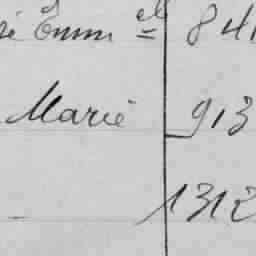 Emm el 841
Marie 913
1312